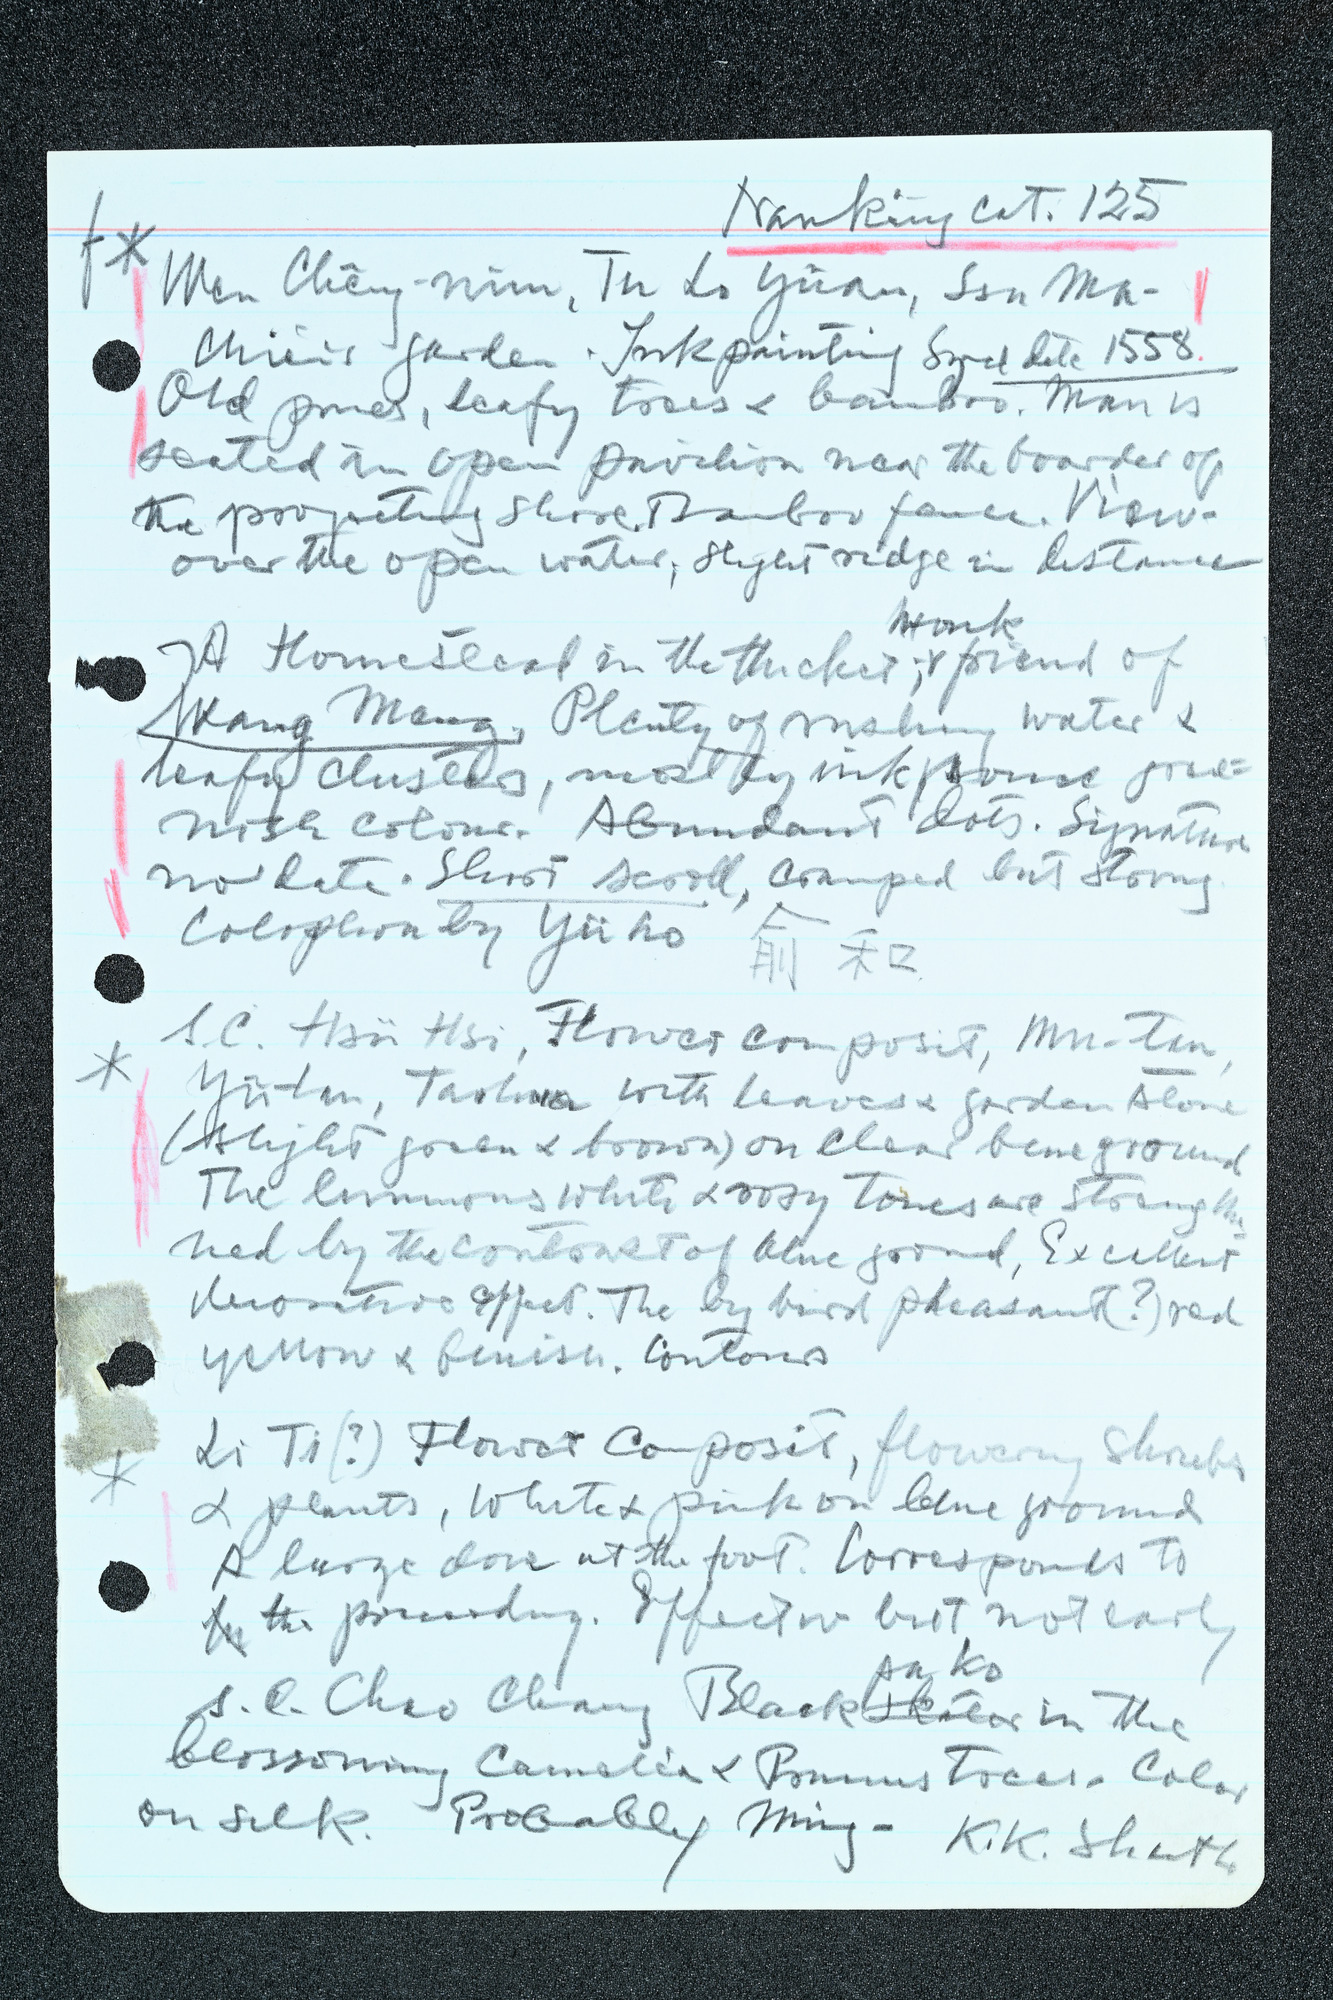 Nanking cat. 125
f * Wen Chêng-ming, Tu Lo Yüan, Ssu Ma-
garden. Ink painting Sgned date 1558.
Old pines, leafy trees & bamboo. Man is
seated in open pavilion near the boarder of
the projecting shore. Bamboo fence. View
over the open water, slight ridge in distance
monk
A Homestead in the thicket; friend of
Wang Meng. Plenty of rushing water &
leafy clusters, mostly ink, some gree=
nish colour. Abundant dots. Signature
no date. Short scroll, cramped but strong
Colophon by Yü ho 俞 和
* S.C. Hsü Hsi, Flower composit, Mu-tan,
Yü-lan, with leaves & garden stone
(slight green & brown) on clear blue ground
The luminous white & rosy tones are strengthe
ned by the contrast of blue ground, Excellent
decorative effect. The big bird pheasant(?) red
yellow & bluish. Contours
* Li Ti (?) Flower composit, flowering shrubs
& plants, white & pink on blue ground
A large dove at the foot. Corresponds to
the preceeding. Effective but not early
s.c. Chao Chang Black in the
blossoming Camelia & Prunus trees. Color
on silk. Probably Ming - K.K.